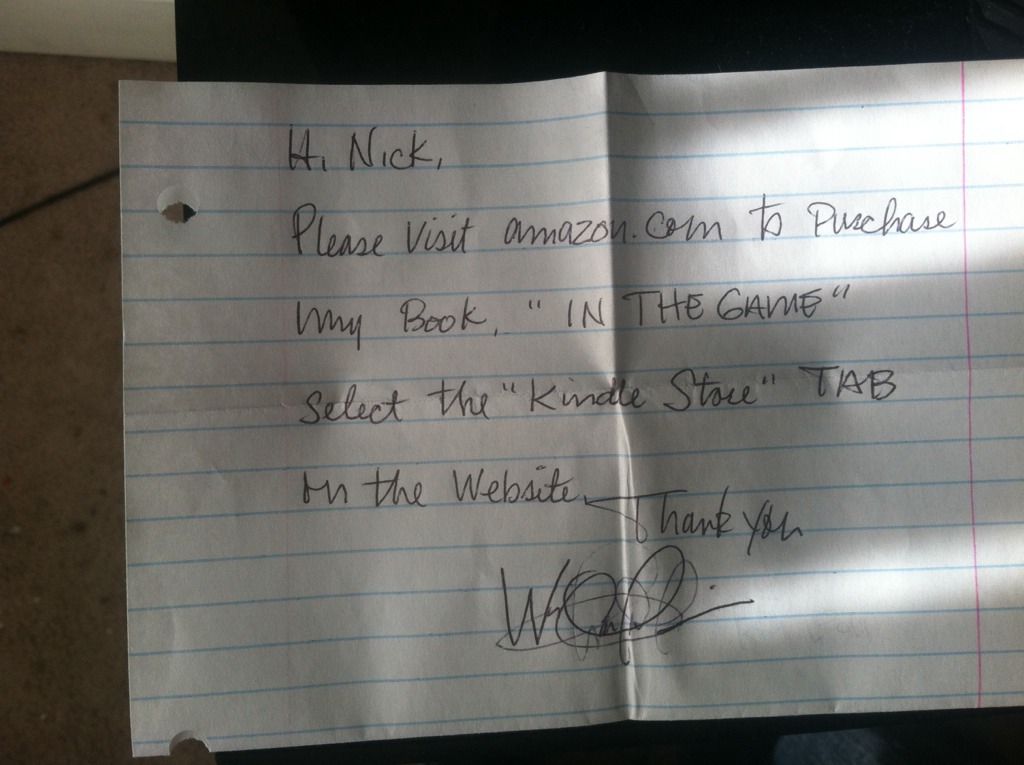 Hi Nick,
Please Visit amazon.com to Purchase
my Book, "IN THE GAME"
Select the "Kindle Store" TAB
on the Website.
Thank you